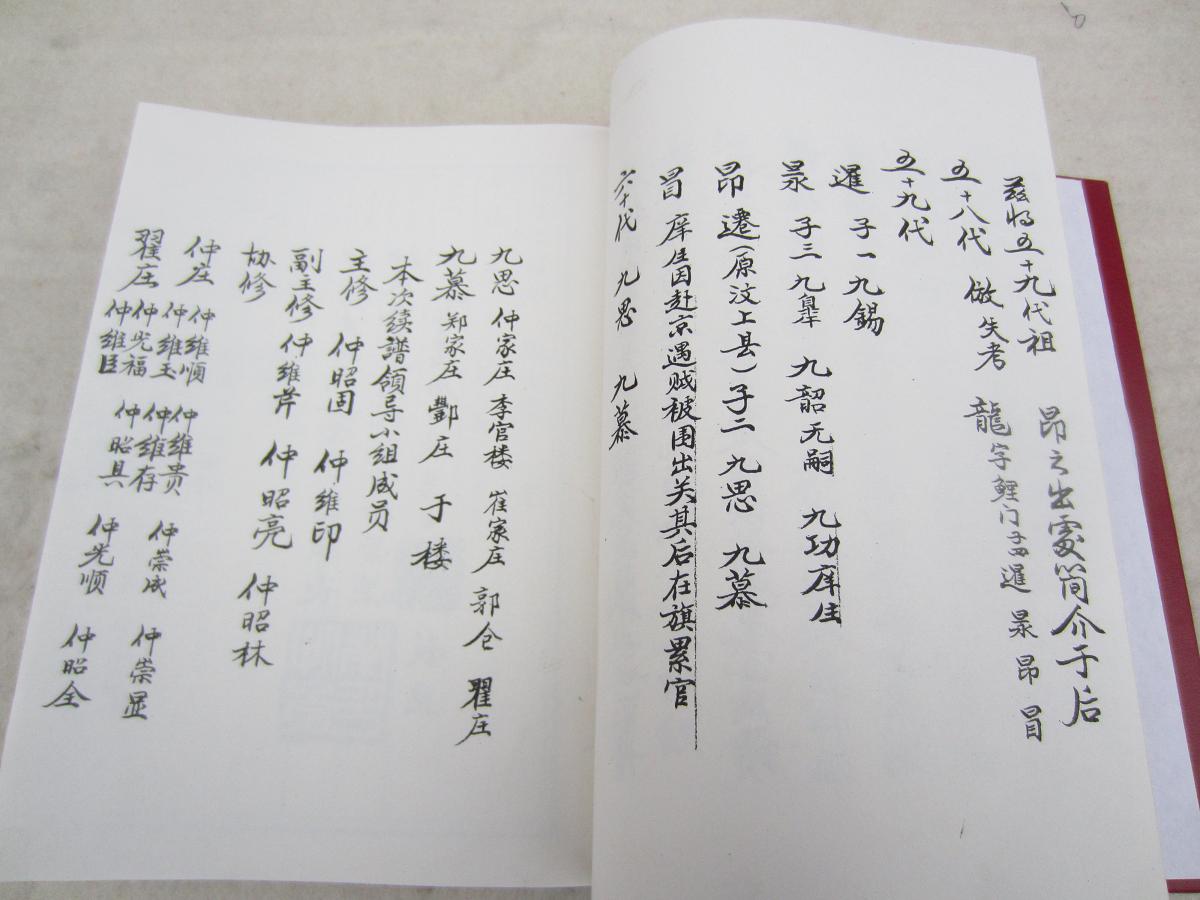 兹将五十九代祖 昂之出处简介于后
五十八代 倣失考 龍字鲤门子四暹 昂 冒
五十九代
暹 子一九锡
子三九皐庠 九韶无嗣 九功庠生
昂 遷(原汶上县)子二九思 九慕
冒 庠生因赴京遇贼被围出关其后在旗累官
六十代 九思 九慕
九思 仲家庄 李官楼 崔家庄 郭仓 翟庄
九慕 郑家庄 酆庄 于楼
本次续譜領导小组成员
主修 仲昭国 仲維印
副主修 仲維芹 仲昭亮 仲昭林
协修
仲庄 仲維順 仲維贵 仲崇成 仲崇显
仲維玉 仲維存
翟庄 仲光福 仲昭具 仲光顺 仲昭全
仲維臣